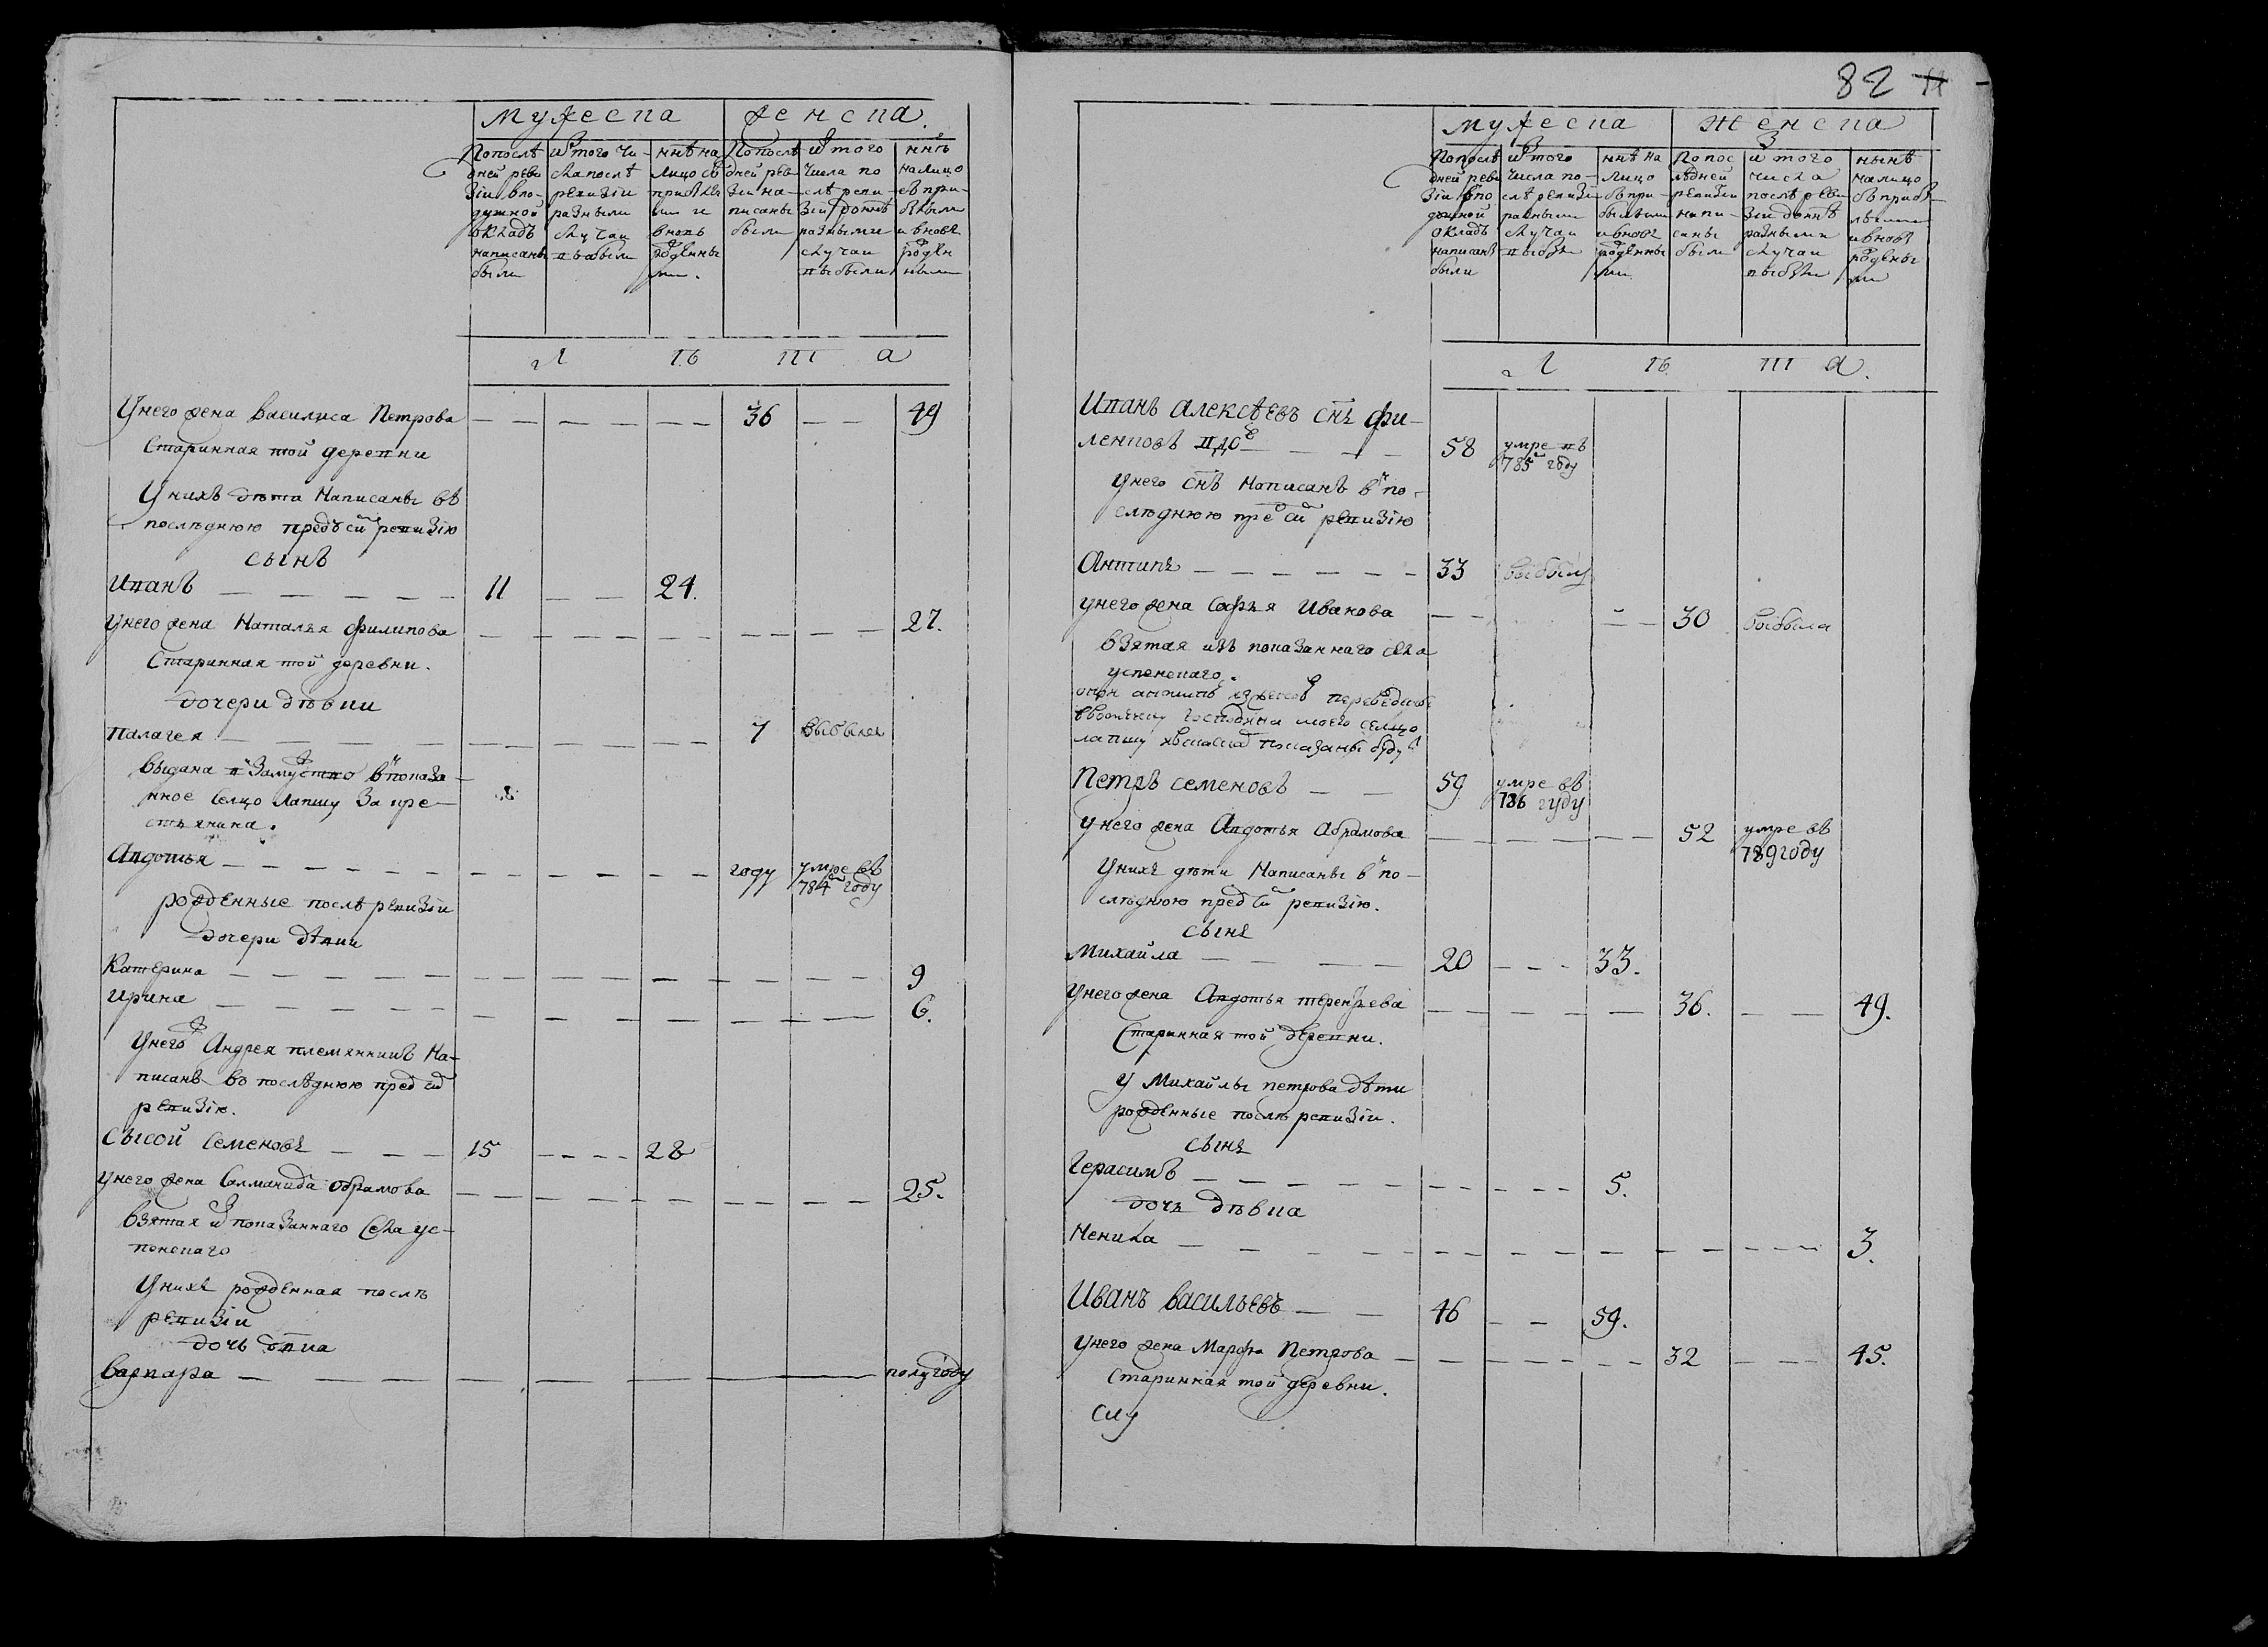 82
мужеска женска.
Попослѣ дней реви зіи впо душной окладъ написаны были
Из того чи сла послѣ ревизіи разными случаи выбыли
ннѣ на лицо съ прибылы ми и вновь рожденны ми.
Попослѣ дней реви зіи на писаны были
Из того числа по слѣ реви зіи доннѣ разными случаи выбыли
ннѣ налицо съ при былыми и вновь рожден ными
л ѣ т а
Унего жена василиса Петрова — 36 — 49
Старинная той деревни
Унихъ дѣти Написаны въ
последнюю предъ сй ревизію
сынъ
Иванъ — 11 — 24.
Унего жена Наталья филипова — 27.
Старинная той деревни.
дочери дѣвки
Палагея — 7 выбыла
выдана в замуство в показа
нное селцо лапшу За кре
стьянина.
Авдотья — году умре въ
784 году
рожденные послѣ ревизіи
дочери дѣвки
Катерина — 9
Ирина — 6.
Унего Андрея племянникъ На-
писанъ въ послѣднюю пред сй
ревизію.
Сысой семеновъ — 15 — 28
Унего жена Саламанида абрамова — 25.
взятая из показаннаго села ус-
пенскаго
Унихъ рожденная послѣ
ревизіи
дочь дѣвка
варвара — полугоду
мужеска женска
Попослѣ дней реви зіи впо душной окладъ написанъ были
Из того числа по слѣ ревизіи разными случаи выбыли
ннѣ на лицо съ при былыми и вновь рожденны ми
По пос лѣдней ревизіи напи саны были
Из того числа послѣ реви зіи доннѣ разными случаи выбыли
нынѣ налицо съ прибы лыми и вновь рожденны ми
л ѣ т а.
Иванъ алексѣевъ снъ фи-
лениовъ — 58 умре въ
785 году
Унего снъ Написанъ в по-
слѣднюю пред сй ревизію
Антипъ — 33 выбылъ
унего жена Софья Иванова — 30 выбыла
взятая изъ показаннаго села
успенскаго.
оной антипъ зженою переведены
ввотчину господина моего селцо
лапшу показаны буду
Петръ семеновъ — 59 умре въ
786 году
унего жена Авдотья абрамова — 52 умре въ
789 году
Унихъ дѣти Написаны в по-
слѣднюю пред сй ревизію.
сынъ
Михайла — 20 — 33.
Унего жена Авдотья терентьева — 36. — 49.
Старинная той деревни.
у Михайлы петрова дѣти
рожденные послѣ ревизіи.
сынъ
Герасимъ — 5.
дочь дѣвка
Ненила — 3.
Иванъ васильевъ — 46 — 59.
Унего жена Марфа Петрова — 32 — 45.
Старинная той деревни.